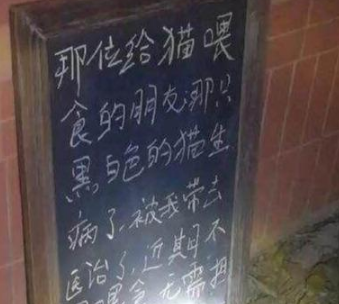 那位给猫喂
食的朋友那只
黑白色的猫生
病了，被我带去
医治了，近期可不
用喂食，无需担